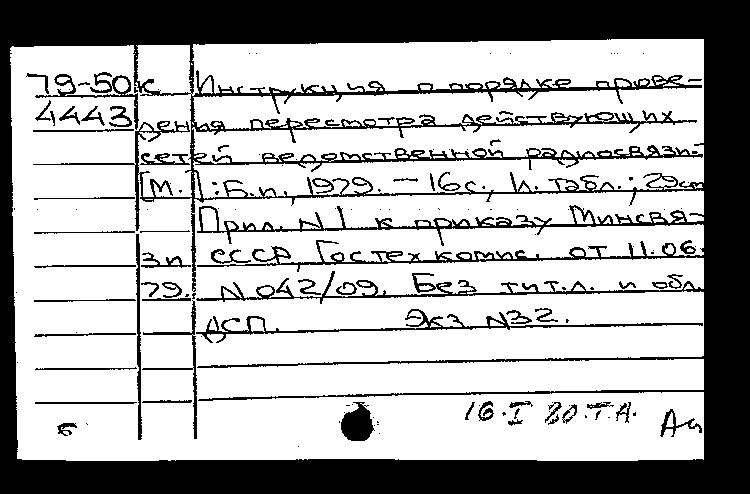 79-50к Инструкция о порядке прове-
4443 дения пересмотра действующих
сетей ведомственной радиосвязи.-
[М.]: Б.и., 1979. — 16с., 1л. табл.; 29см
Прил. N1 к приказу Минсвя-
зи СССР, Гостехкомис. от 11.06.
79. N 042/09. Без тит.л. и обл.
ДСП. Экз. N32.
16.I 80.Т.А.
б